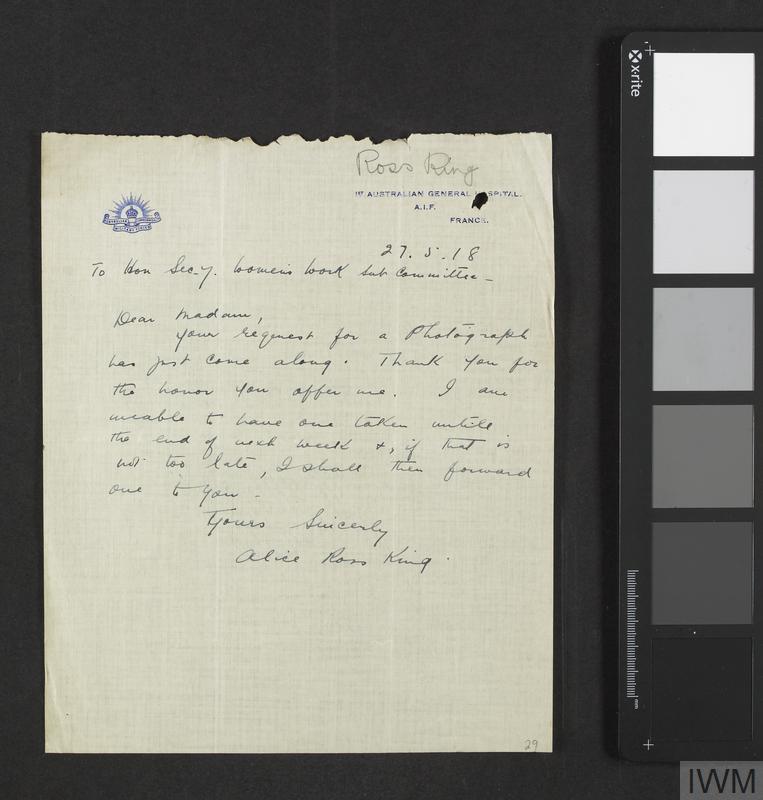 Ross King
1st AUSTRALIAN GENERAL HOSPITAL.
A.I.F.
FRANCE.
27.5.18
To Hon Sec-y. Women's Work Sub Committee -
Dear Madam,
Your request for a Photograph
has just come along. Thank you for
the honor you offer me. I am
unable to have one taken untill
the end of next week &, if that is
not too late, I shall then forward
one to you -
Yours Sincerly
Alice Ross King.
29
x-rite
mm
IWM